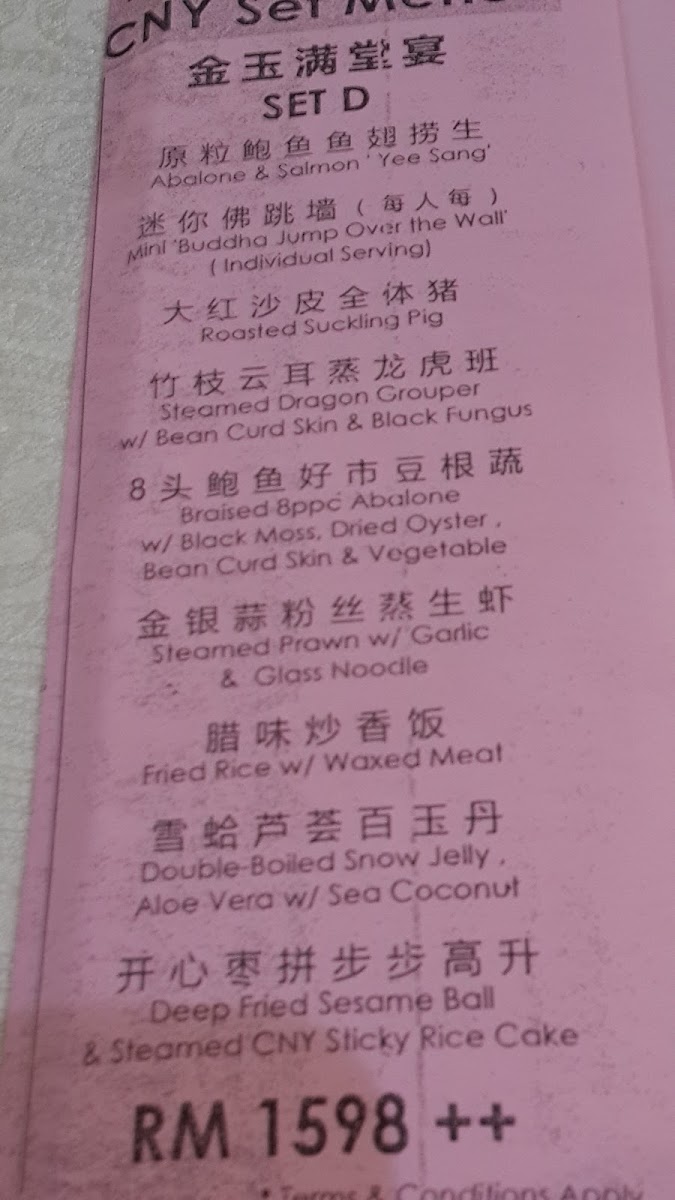 CNY Set Menu
金玉满堂宴
SET D
原粒鲍鱼鱼翅捞生
Abalone & Salmon 'Yee Sang'
迷你佛跳墙(每人每)
Mini 'Buddha Jump Over the Wall'
( Individual Serving)
大红沙皮全体猪
Roasted Suckling Pig
竹枝云耳蒸龙虎班
Steamed Dragon Grouper
w/ Bean Curd Skin & Black Fungus
8头鲍鱼好市豆根蔬
Braised 8ppc Abalone
w/ Black Moss, Dried Oyster ,
Bean Curd Skin & Vegetable
金银蒜粉丝蒸生虾
Steamed Prawn w/ Garlic
& Glass Noodle
腊味炒香饭
Fried Rice w/ Waxed Meat
雪蛤芦荟百玉丹
Double-Boiled Snow Jelly ,
Aloe Vera w/ Sea Coconut
开心枣拼步步高升
Deep Fried Sesame Ball
& Steamed CNY Sticky Rice Cake
RM 1598 ++
* Terms & Conditions Apply